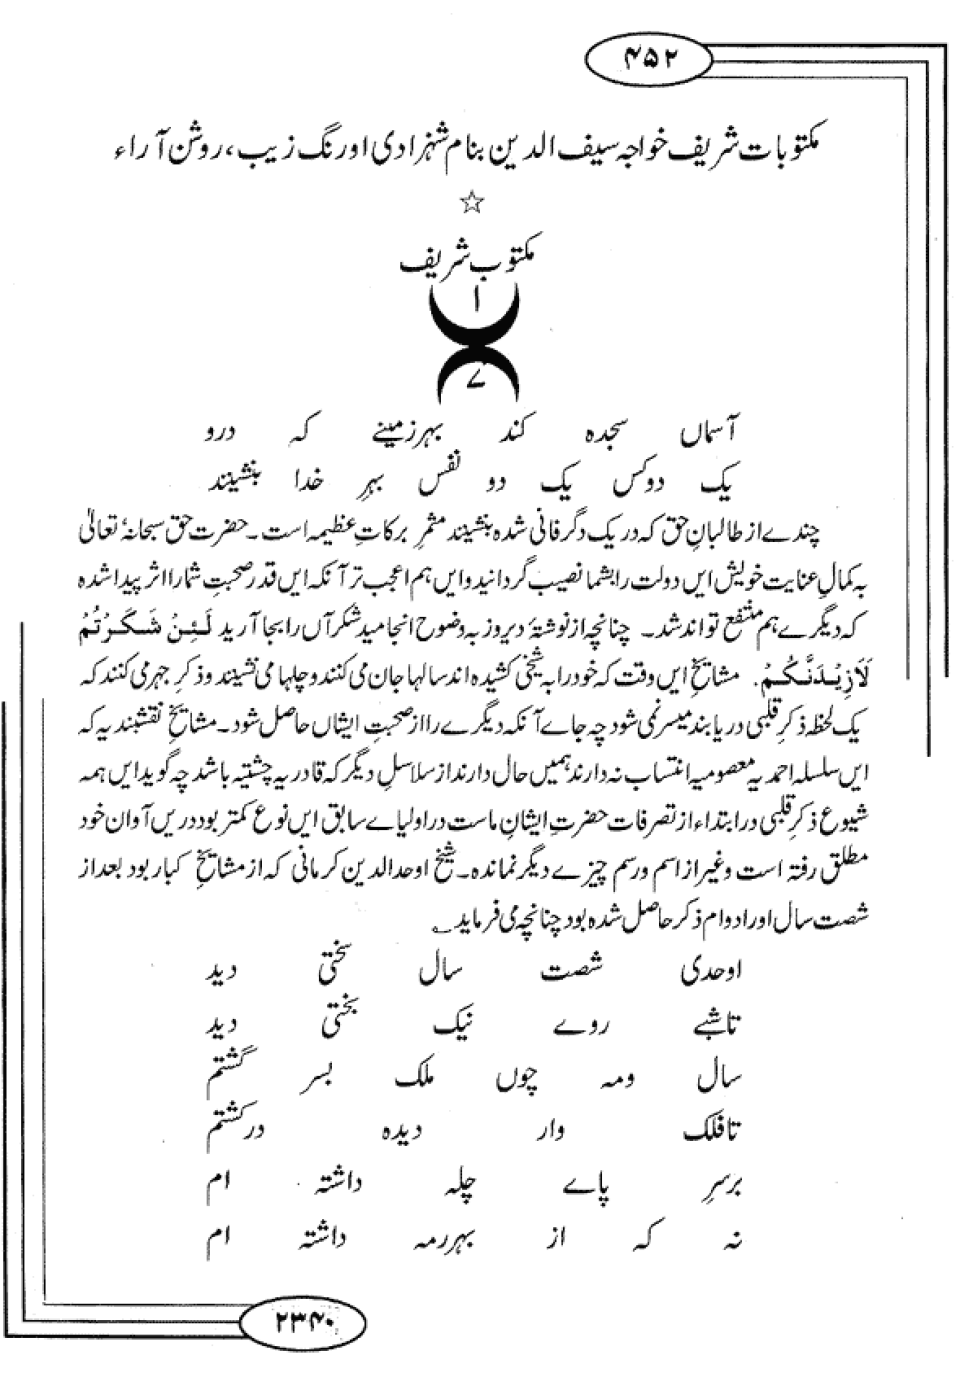 ۴۵۲
مکتوبات شریف خواجہ سیف الدین بنام شہزادی اورنگ زیب، روشن آراء
مکتوب شریف
۱
۷
آسماں سجدہ کند بہرزمینے کہ درو
یک دوکس یک دو نفس بہرِ خدا بنشیند
چندے از طالبانِ حق کہ دریک دگر فانی شدہ بنشیند مثمرِ برکاتِ عظیمہ است۔ حضرت حق سبحانہٗ تعالیٰ
بہ کمالِ عنایت خویش ایں دولت را بشما نصیب گردانید و ایں ہم اعجب تر آنکہ ایں قدر صحبتِ شمارا اثر پیدا شدہ
کہ دیگرے ہم منتفع تواند شد۔ چنانچہ از نوشتۂ دیروز بہ وضوح انجامید شکر آں را بجا آرید لَئِنْ شَکَرْتُمْ
لَاَزِیْدَنَّکُمْ. مشایخِ ایں وقت کہ خود را بہ شیخی کشیدہ اند سالہا جان می کنند و چلہا می نشیند و ذکرِ جہری کنند کہ
یک لحظہ ذکرِ قلبی دریابند میسر نمی شود چہ جاے آنکہ دیگرے را از صحبتِ ایشاں حاصل شود۔ مشایخِ نقشبندیہ کہ
ایں سلسلہ احمدیہ معصومیہ انتساب نہ دارند ہمیں حال دارند از سلاسلِ دیگر کہ قادریہ چشتیہ باشد چہ گوید ایں ہمہ
شیوعِ ذکرِ قلبی در ابتداء از تصرفات حضرتِ ایشانِ ماست در اولیاے سابق ایں نوع کمتر بود دریں آوان خود
مطلق رفتہ است و غیر از اسم و رسم چیزے دیگر نماندہ۔ شیخ اوحدالدین کرمانی کہ از مشایخِ کبار بود بعد از
شصت سال اورا دوام ذکر حاصل شدہ بود چنانچہ می فرماید؎
اوحدی شصت سال سختی دید
تاشبے روے نیک بختی دید
سال ومہ چوں ملک بسر گشتم
تافلک وار دیدہ درکشتم
برسرِ پاے چلہ داشتہ ام
نہ کہ از بہررمہ داشتہ ام
۲۳۴۰